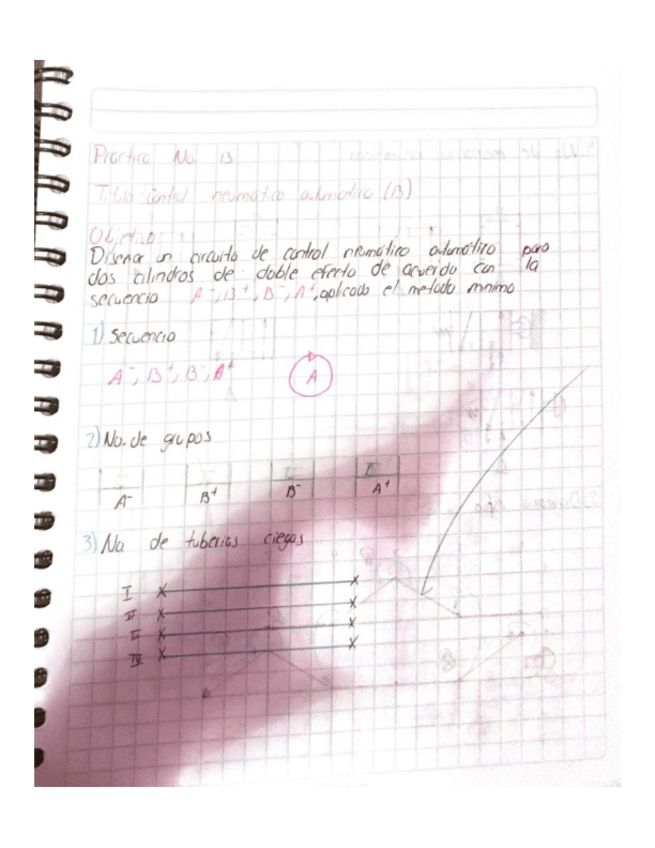 Practica No. 13
Titulo Control neumatico automatico (B)
Objetivo:
Diseñar un circuito de control neumatico automatico para
dos cilindros de doble efecto de acuerdo con la
secuencia A⁻, B⁺, B⁻, A⁺, aplicado el metodo minimo
1) Secuencia
A⁻, B⁺, B⁻, A⁺
A
2) No. de grupos
A⁻ B⁺ B⁻ A⁺
3) No de tuberias ciegas
I
II
III
IV